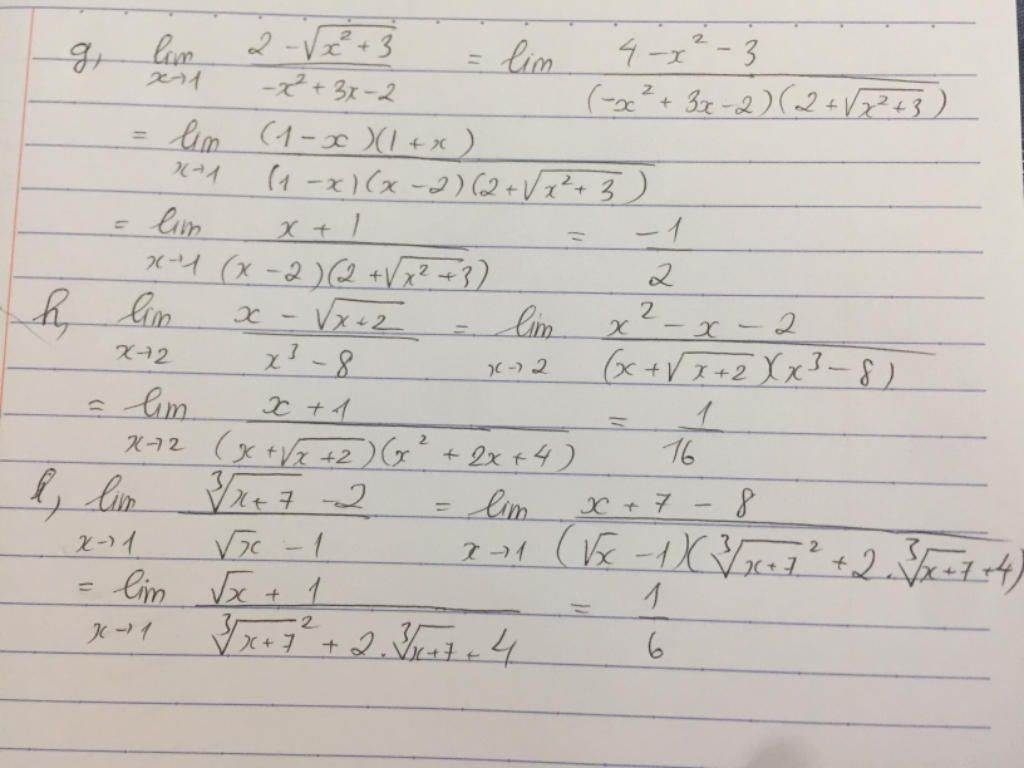 g, lim x→1 (2 - √(x² + 3)) / (-x² + 3x - 2) = lim (4 - x² - 3) / ((-x² + 3x - 2)(2 + √(x² + 3)))
= lim x→1 ((1 - x)(1 + x)) / ((1 - x)(x - 2)(2 + √(x² + 3)))
= lim x→1 (x + 1) / ((x - 2)(2 + √(x² + 3))) = -1/2
h, lim x→2 (x - √(x + 2)) / (x³ - 8) = lim x→2 (x² - x - 2) / ((x + √(x + 2))(x³ - 8))
= lim x→2 (x + 1) / ((x + √(x + 2))(x² + 2x + 4)) = 1/16
l, lim x→1 (∛(x + 7) - 2) / (√x - 1) = lim x→1 (x + 7 - 8) / ((√x - 1)(∛(x + 7)² + 2.∛(x + 7) + 4)
= lim x→1 (√x + 1) / (∛(x + 7)² + 2.∛(x + 7) + 4) = 1/6